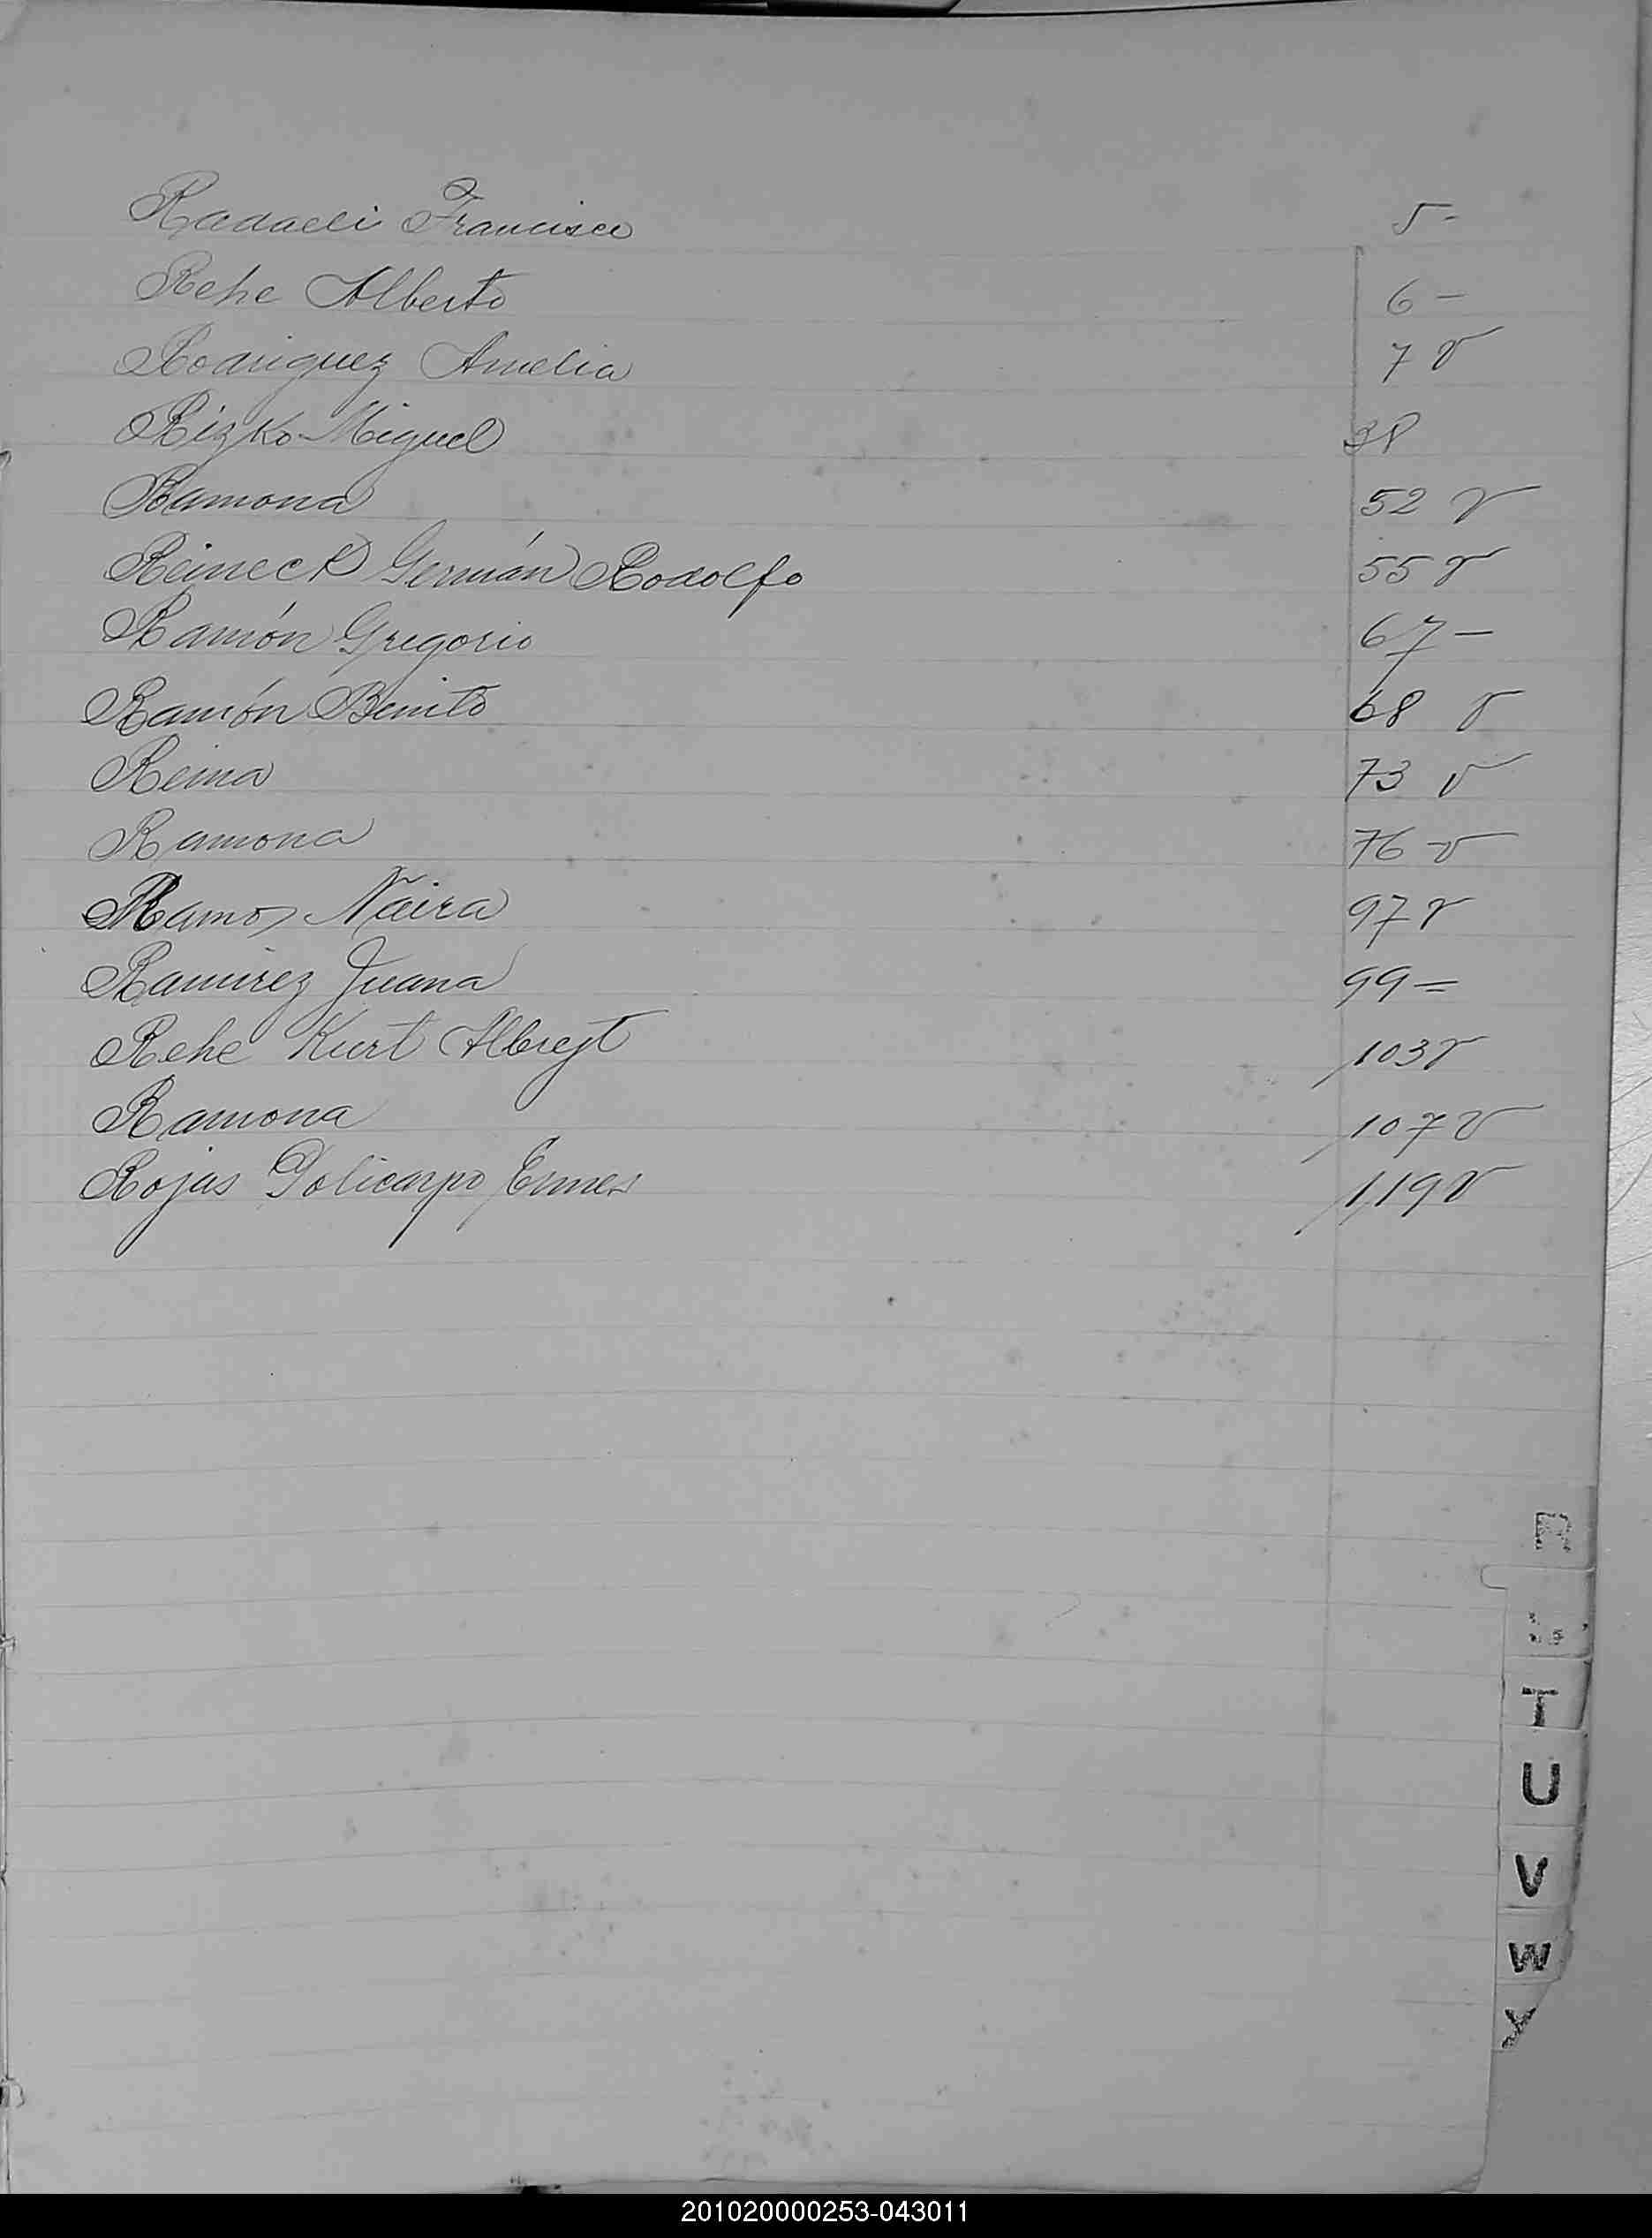 Radaeli Francisco 5-
Rehe Alberto 6-
Rodriguez Amelia 7 v
Rizko Miguel 38
Ramona 52 v
Reineck Germán Rodolfo 55 v
Ramón Gregorio 67-
Ramón Benito 68 v
Reina 73 v
Ramona 76 v
Ramos Naira 97 v
Ramirez Juana 99=
Rehe Kurt 103 v
Ramona 107 v
Rojas Policarpo Ermes 119 v
R
S
T
U
V
W
201020000253-043011